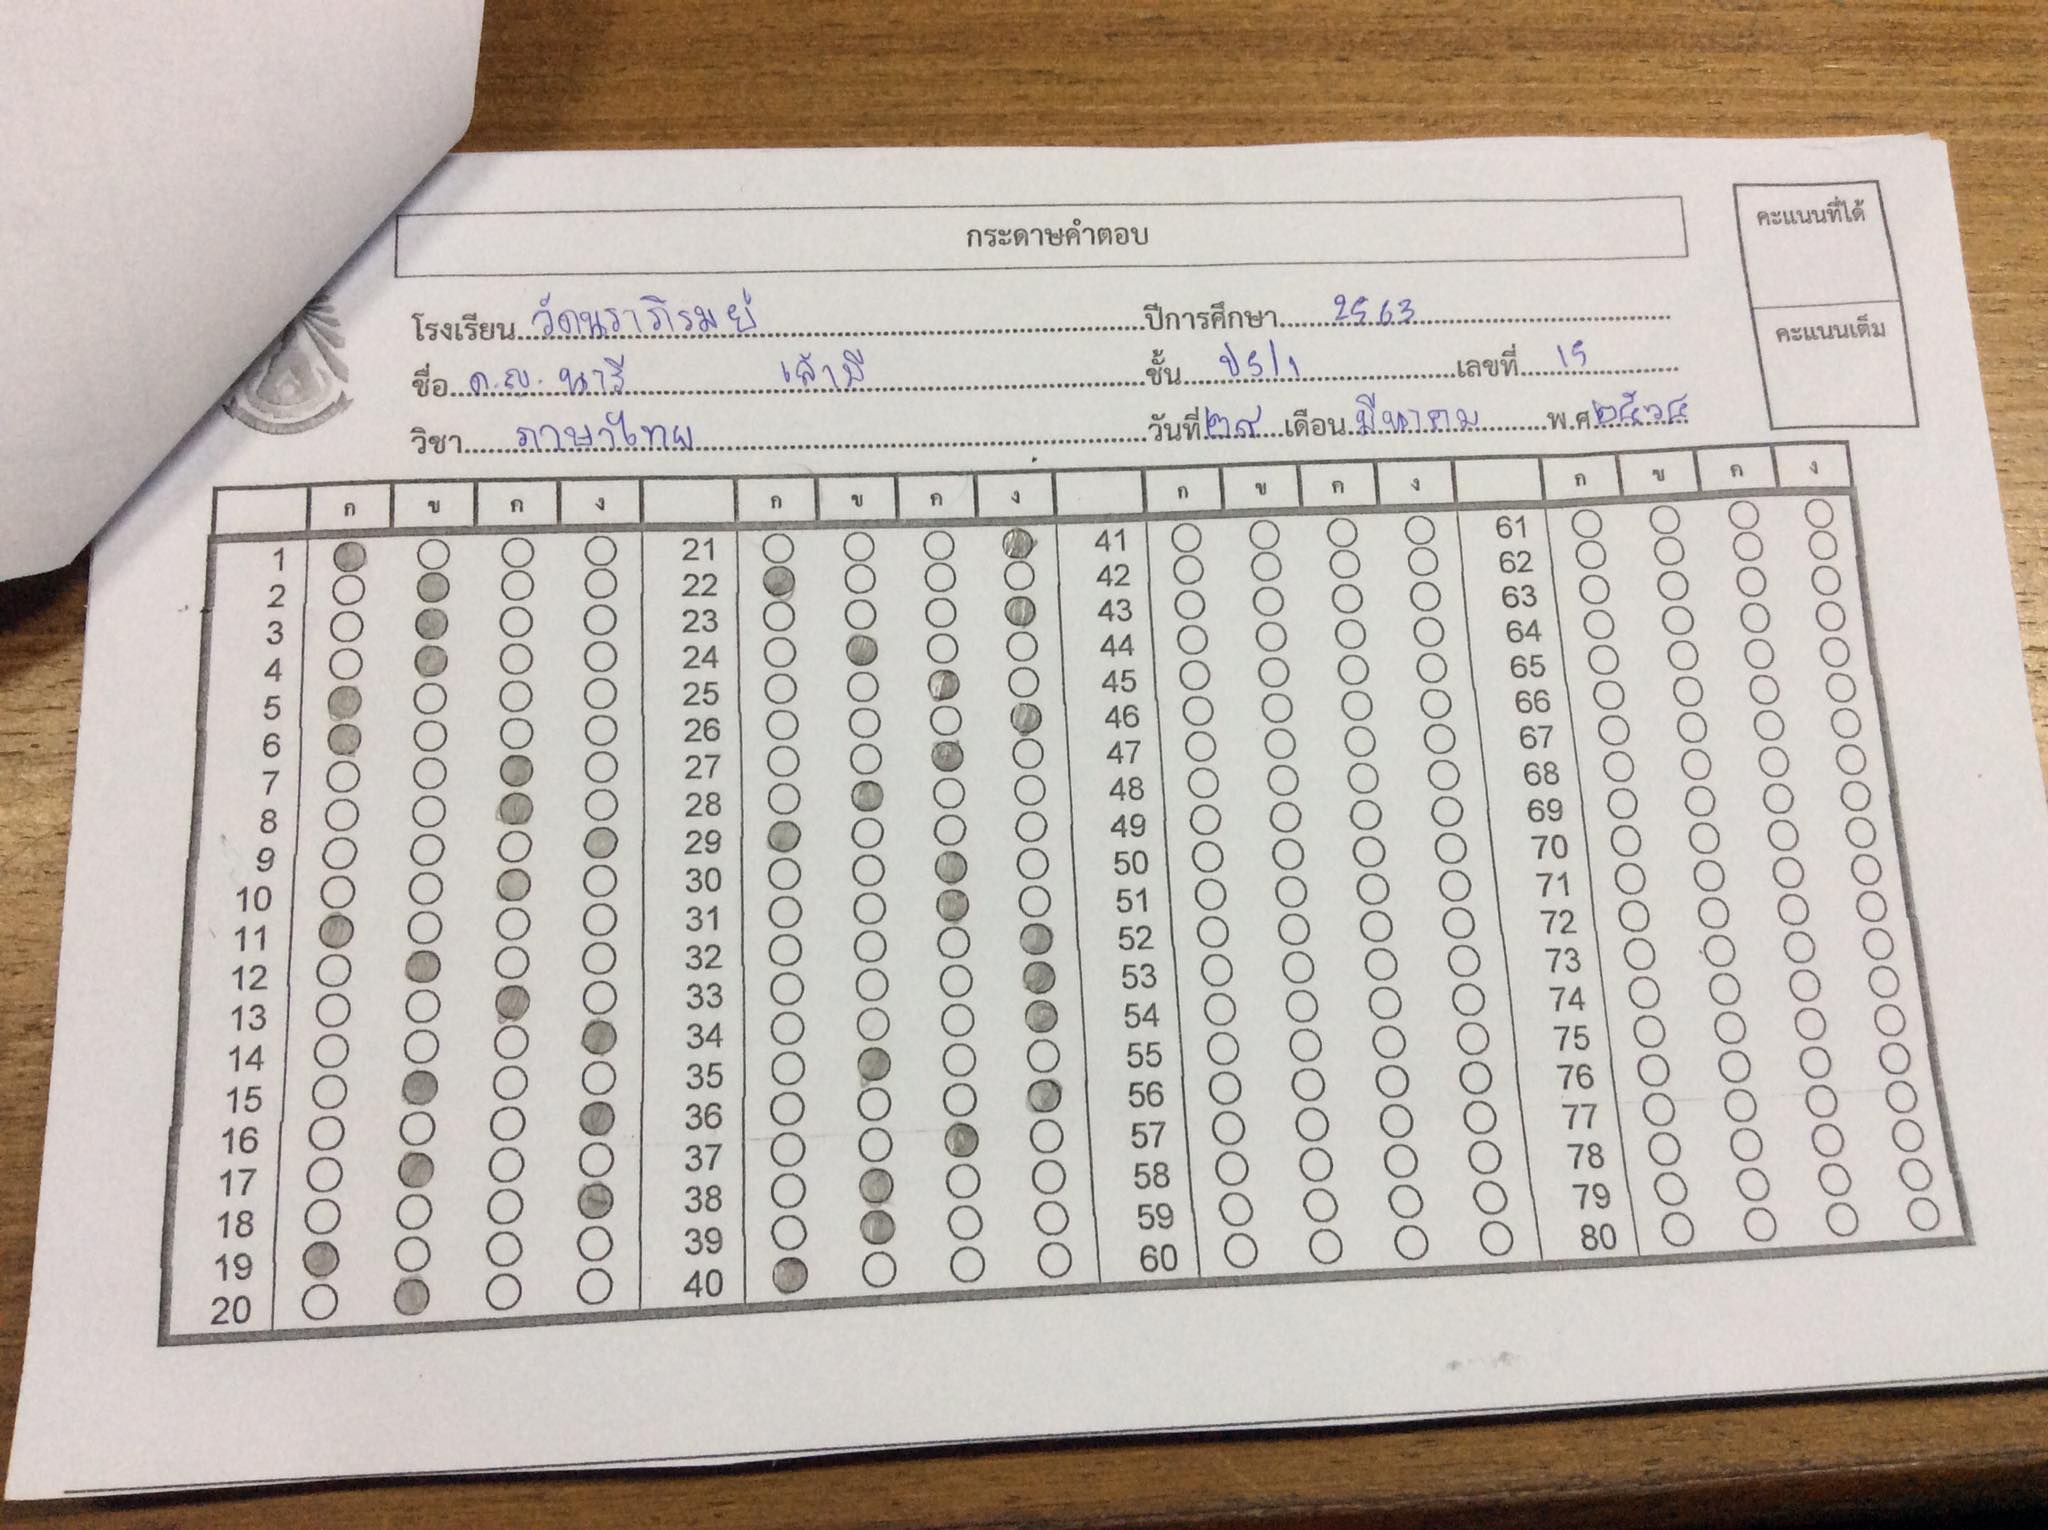 กระดาษคำตอบ
คะแนนที่ได้
โรงเรียน วัดนราภิรมย์ ปีการศึกษา 2563
ชื่อ ด.ญ. นารี เล้ามี ชั้น ป5/1 เลขที่ 15
คะแนนเต็ม
วิชา ภาษาไทย วันที่ ๒๙ เดือน มีนาคม พ.ศ ๒๕๖๔
ก ข ค ง ก ข ค ง ก ข ค ง ก ข ค ง
1 21 41 61
2 22 42 62
3 23 43 63
4 24 44 64
5 25 45 65
6 26 46 66
7 27 47 67
8 28 48 68
9 29 49 69
10 30 50 70
11 31 51 71
12 32 52 72
13 33 53 73
14 34 54 74
15 35 55 75
16 36 56 76
17 37 57 77
18 38 58 78
19 39 59 79
20 40 60 80